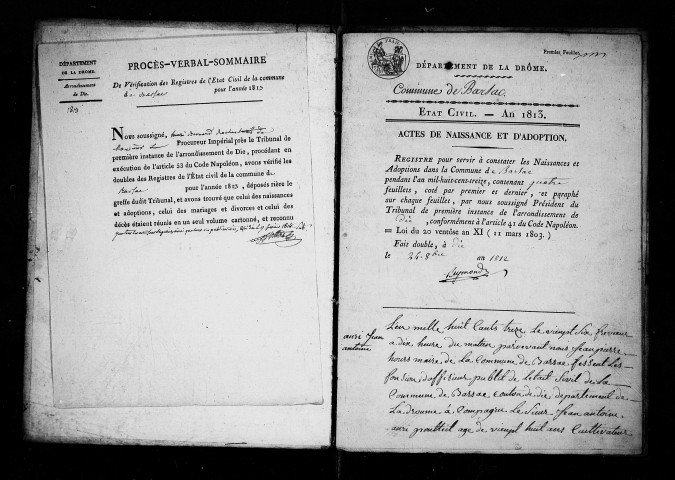 DÉPARTEMENT
DE LA DRÔME.
Arrondissement
de Die.
1813
PROCÈS-VERBAL-SOMMAIRE
De Vérification des Registres de l'Etat Civil de la commune
de Barsac pour l'année 1813
Nous soussigné,
Procureur Impérial près le Tribunal de
première instance de l'arrondissement de Die, procédant en
exécution de l'article 53 du Code Napoléon, avons vérifié les
doubles des Registres de l'État civil de la commune de
Barsac pour l'année 1813, déposés rière le
greffe dudit Tribunal, et avons trouvé que celui des naissances
et adoptions, celui des mariages et divorces et celui des
décès étaient réunis en un seul volume cartonné, et reconnu
Premier Feuillet
DÉPARTEMENT DE LA DRÔME.
Commune de Barsac.
ÉTAT CIVIL. — AN 1813.
ACTES DE NAISSANCE ET D'ADOPTION.
REGISTRE pour servir à constater les Naissances et
Adoptions dans la Commune de Barsac
pendant l'an mil-huit-cent-treize, contenant quatre
feuillets, coté par premier et dernier, et paraphé
sur chaque feuillet, par nous soussigné Président du
Tribunal de première instance de l'arrondissement de
Die, conformément à l'article 41 du Code Napoléon.
= Loi du 20 ventôse an XI (11 mars 1803.)
Fait double, à Die
le 24 8bre an 1812
Reymond
auri Jean
antoine
Lan mille huit Cants treze Le vienpt Six fevrieur
a dix heure du matein parcevant nous Jean pierre
hours maire de la Commune de Barsac fesseut Les
fonsion dofisieur publit de Letait Sivil de La
Commune de Barsac Conton de die departement de
La droume à Compagru Le Sieur Jean antoine
auri age de vienpt huit ans Cultivateur